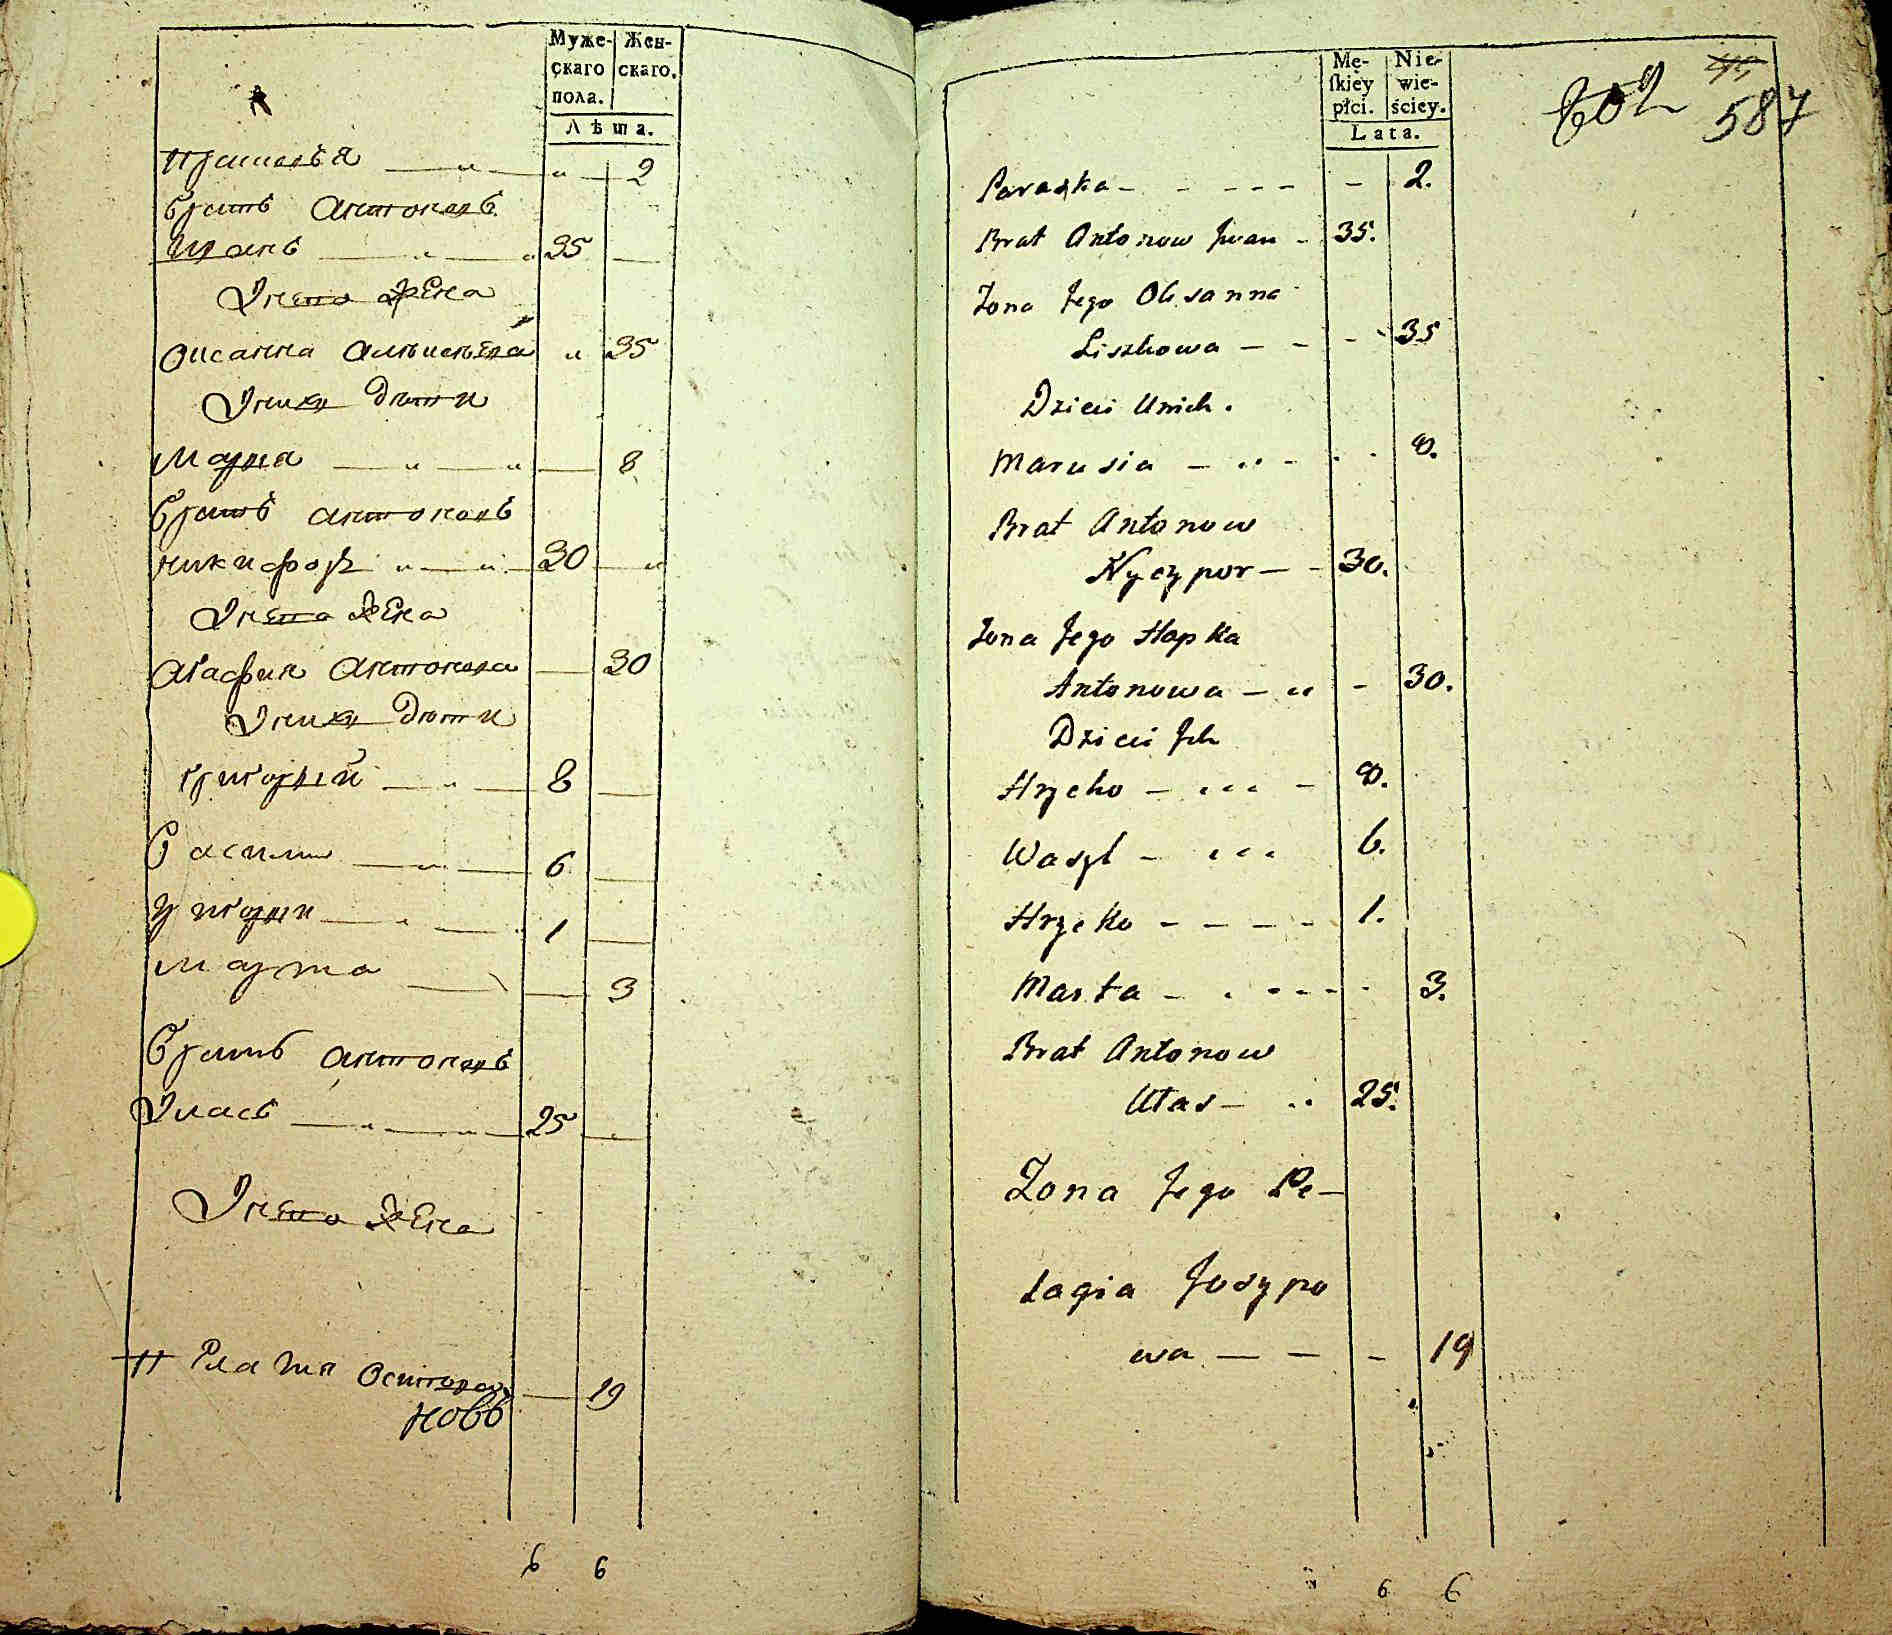 Муже- Жен-
скаго скаго.
пола.
Лѣта.
Прасковья 2
братъ Антоновъ
Иванъ 35
Унего жена
Оксанна Алексѣева 35
Унихъ дѣти
Марья 8
братъ Антоновъ
Никифоръ 30
Унего жена
Агафия Антонова 30
Унихъ дѣти
Григорий 8
Василий 6
Григорий 1
Марта 3
Братъ Антоновъ
Уласъ 25
Унего жена
Пелагия 19
6 6
Mę- Nie-
skiey wie-
płci. ściey.
Lata.
Paraska - - - - - - 2.
Brat Antonow Jwan - 35.
Zona Jego Oksanna
Liszkowa - - - 35
Dzieci Unich.
Marusia - - 8.
Brat Antonow
Nyczypor - - 30.
Zona Jego Hapka
Antonowa - - 30.
Dzieci Jch
Hrycko - - 8.
Wasyl - 6.
Hrycko - - - - 1.
Marta - - - - 3.
Brat Antonow
Ułas - 25.
Zona Jego Pe-
lagia Josypo
wa - - - 19
6 6
587